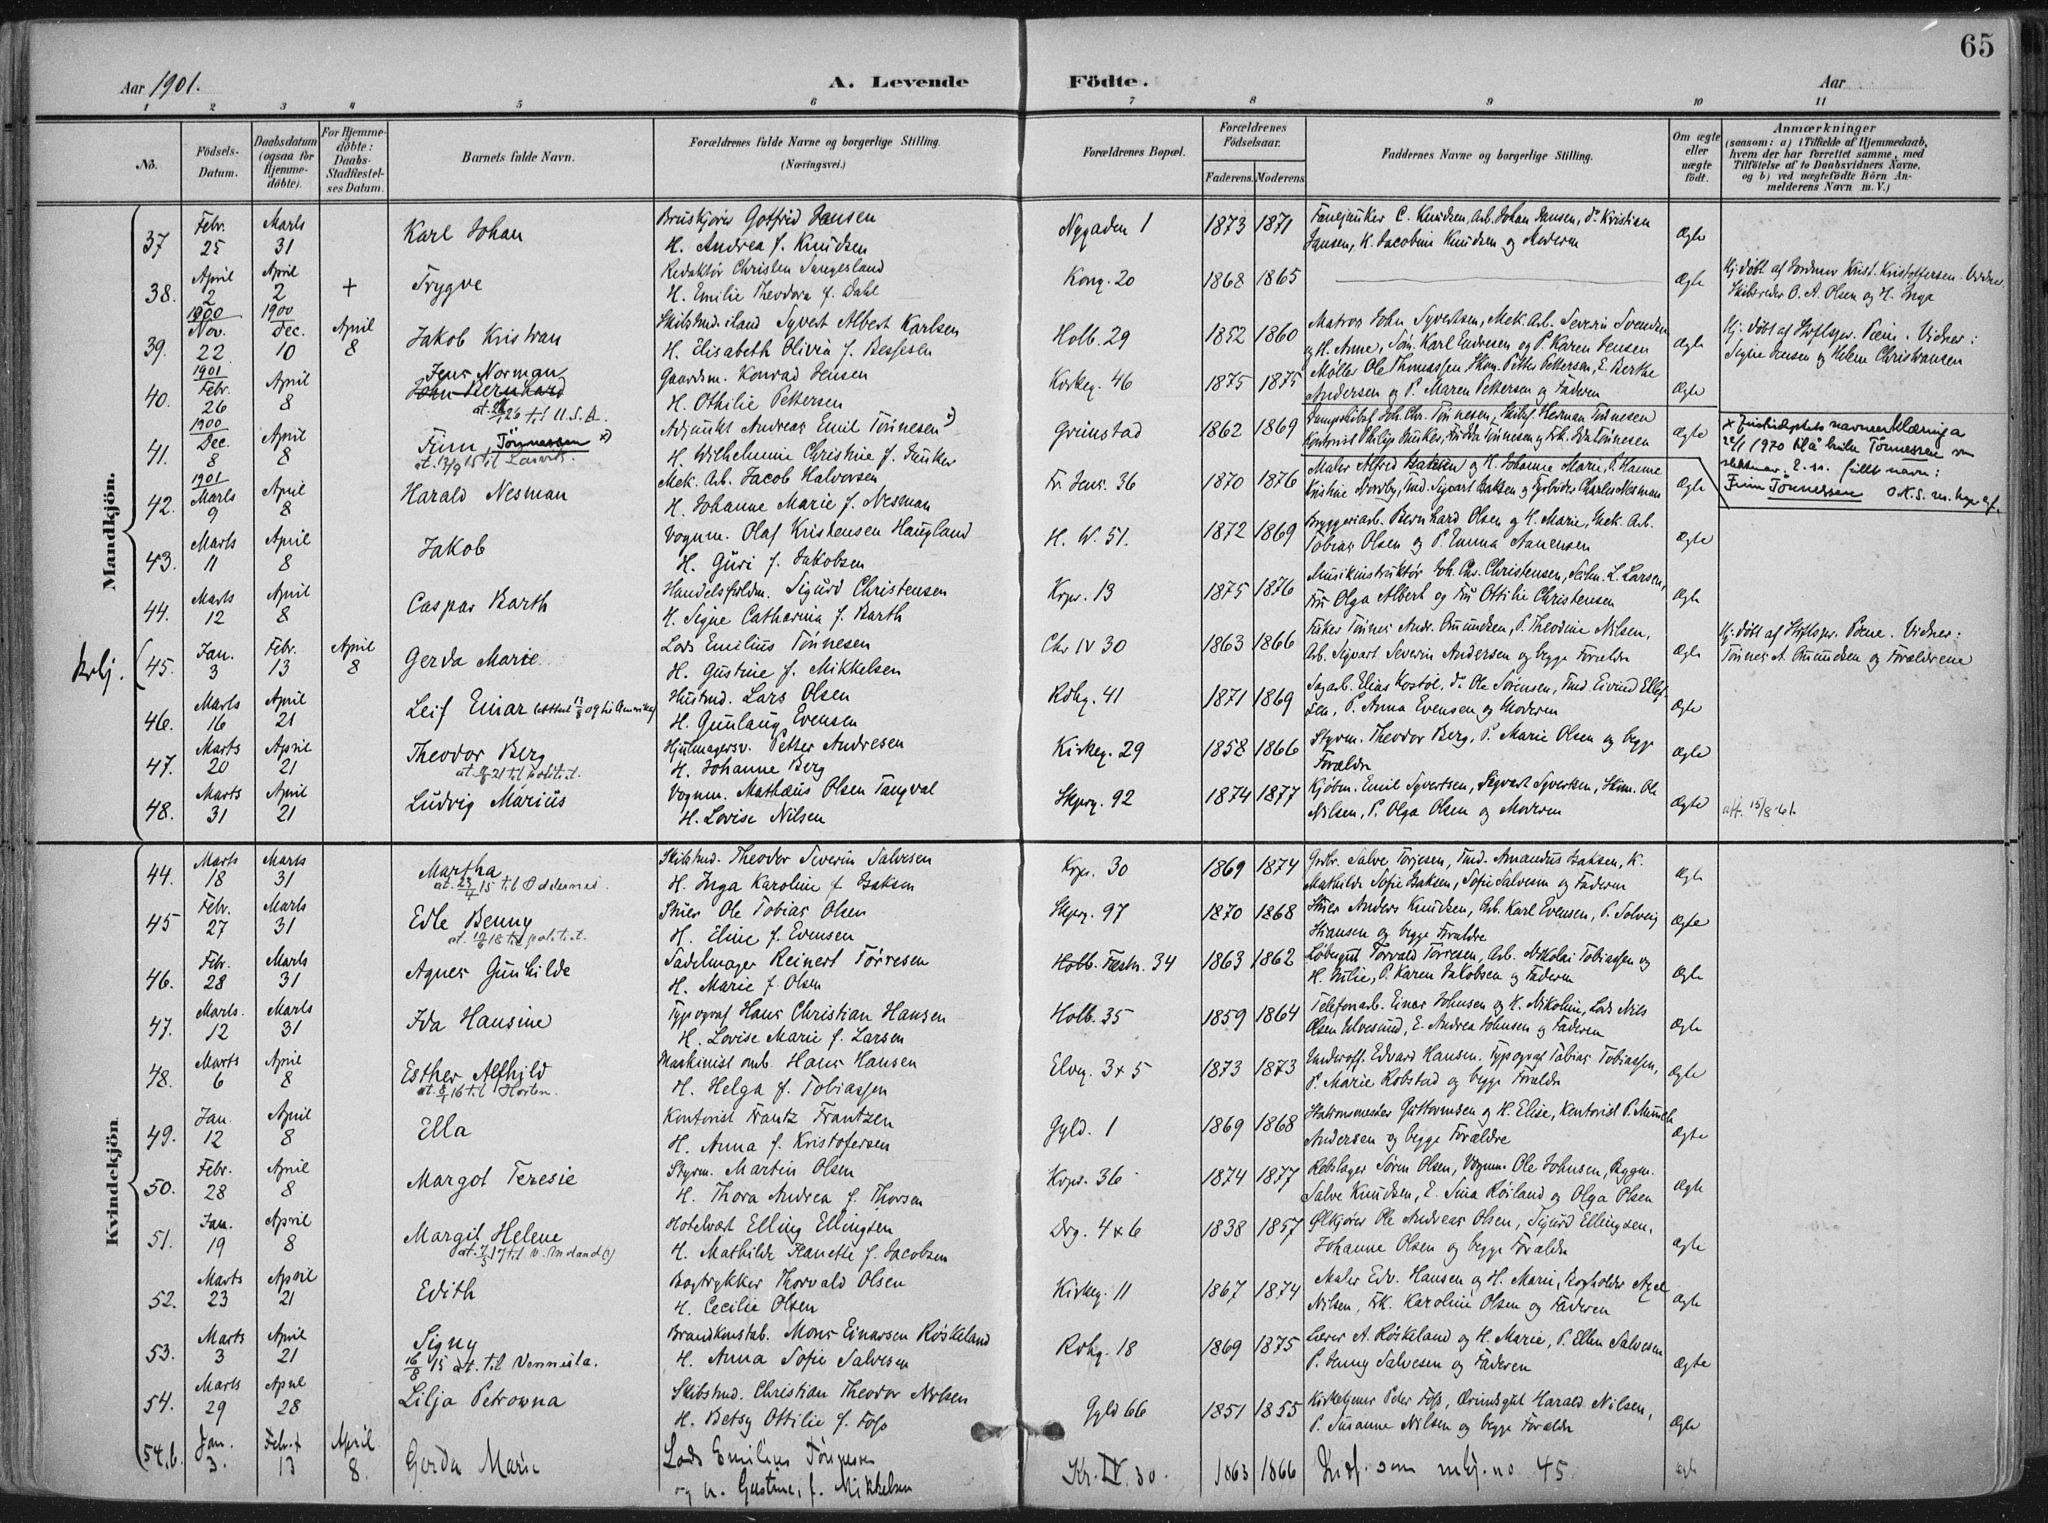 65
Aar 1901.
A. Levende Födte.
Aar
1 2 3 4 5 6 7 8 9 10 11
No.
Födsels-Datum.
Daabsdatum (ogsaa for Hjemme-döbte).
For Hjemme-döbte: Daabs-Stadfæstel-ses Datum.
Barnets fulde Navn.
Forældrenes fulde Navne og borgerlige Stilling. (Næringsvei.)
Forældrenes Bopæl.
Forældrenes Födselsaar.
Faderens. Moderens.
Faddernes Navne og borgerlige Stilling.
Om ægte eller uægte födt.
Anmærkninger
(saasom: a) i Tilfælde af Hjemmedaab,
hvem der har forrettet samme, med
Tilföielse af to Daabsvidners Navne,
og b) ved uægtefödte Börn An-
melderens Navn m. V.)
Mandkjön.
37 Febr. 25 Marts 31 Karl Johan Gotfrid Jansen
H. Andrea f. Knudsen Nygaden 1 1873 1871 C. Knudsen, Arb. Johan Jansen, do Kristian
Jansen, K. Jacobine Knudsen og Moderen Ægte
38. April 2 April 2 + Trygve Redaktör Christen
H. Emilie Theodora f. Dahl Kong. 20 1868 1865 Ægte Hj. döbt af Jordmor Krist. Kristoffersen. Vidner
Skibsreder O. A. Olsen og H. Inga
39. 1900 Nov. 22 1900 Dec. 10 April 8 Jakob Kristian Syvert Albert Karlsen
H. Elisabeth Olivia f. Holb. 29 1852 1860 Matros John Syvertsen, Mek. Arb. Severin Svendsen
og H. Anne, Karl Andresen og P. Karen Jensen Ægte Hj. döbt af Stiftspr. Vidner:
Signe Jensen og Helene Christiansen
40. 1901 Febr. 26 April 8 Jens Norman John Bernhard Gaardm. Konrad Jensen
til U.S.A. H. Othilie Pettersen Kirkeg. 46 1875 1875 Möller Ole Thomassen Petter Pettersen, E. Berthe
Andersen og P. Maren Pettersen og Faderen Ægte
41. 1900 Dec. 8 April 8 Finn Tönnessen x) Adjunkt Andreas Emil Tönnesen
at. 13/9 15 til Larvik. H. Wilhelmine Christine f. Junker Grimstad 1862 1869 Joh. Chr. Tönnesen, Herman Tönnesen
Ægte
22/1 1970 Tönnessen
fullt navn:
Finn Tönnessen
42. 1901 Marts 9 April 8 Harald Nesman Mek. Arb. Jacob Halvorsen
H. Johanne Marie f. Nesman Fr. Jens. 36 1870 1876 Maler Alfred Isaksen og H. Johanne Marie, P. Hanne
Kristine Nordby, Tmd. Sigvart Isaksen og Fyrböder Charles Nesman Ægte
43. Marts 11 April 8 Jakob Vognm. Olaf Kristensen Haugland
H. Guri f. Jakobsen H. W. 51. 1872 1869 Bryggeriarb. Bernhard Olsen og H. Marie, Mek. Arb.
Tobias Olsen og P. Emma Aanensen Ægte
44. Marts 12 April 8 Caspar Barth Sigurd Christensen
H. Signe Catharina f. Barth Krps. 13 1875 1876 Musikinstruktör Joh. Chr. Christensen, L. Larsen,
Fru Olga Albert og Fru Ottilie Christensen Ægte
Kvkj. 45. Jan. 3 Febr. 13 April 8 Gerda Marie Lods Emilius Tönnesen
H. Gustine f. Mikkelsen Chr IV 30 1863 1866 Fisker Tönnes Andr. Omundsen, P. Theodine Nilsen,
Arb. Sigvart Severin Andersen og begge Forældre Ægte Hj. döbt af Stiftspr. Vidner:
Tönnes A. Omundsen og Forældrene
46. Marts 16 April 21 Leif Einar Hustmd. Lars Olsen
H. Gunlaug Evensen Rdhg. 41 1871 1869 Sagarb. Elias do Ole Sörensen, Tmd. Eivind Ellef-
sen, P. Anna Evensen og Moderen Ægte
47. Marts 20 April 21 Theodor Berg Hjulmagersv. Petter Andresen
H. Johanne Berg Kirkeg. 29 1858 1866 Styrm. Theodor Berg, P. Marie Olsen og begge
Forældre Ægte
48. Marts 31 April 21 Ludvig Marius Vognm. Mathæus Olsen Tangval
H. Lovise Nilsen Skperg. 92 1874 1877 Kjöbm. Emil Syvertsen, Sigvart Syvertsen, Ole
Nilsen, P. Olga Olsen og Moderen Ægte att. 15/8 61.
Kvindekjön
44. Marts 18 Marts 31 Martha Skibstmd. Theodor Severin Salvesen
til Oddernes. H. Inga Karoline f Isaksen Krps. 30 1869 1874 Salve Torjesen, Tmd. Amandus Isaksen, K.
Mathilde Sofie Isaksen, Sofie Salvesen og Faderen Ægte
45 Febr. 27 Marts 31 Edle Benny Stuer Ole Tobias Olsen
H. Eline f. Evensen Skperg. 97 1870 1868 Stuer Anders Knudsen, Arb. Karl Evensen, P. Solveig
og begge Forældre Ægte
46. Febr. 28 Marts 31 Agnes Gunhilde Sadelmager Reinert Törresen
H. Marie f. Olsen Holb. Fæstn. 34 1863 1862 Löbegut Torvald Torresen, Arb. Nikolai Tobiassen og
H. Julie, P. Karen Jakobsen og Faderen Ægte
47. Marts. 12 Marts 31 Ida Hansine Typograf Hans Christian Hansen
H. Lovise Marie f. Larsen Holb. 35 1859 1864 Telefonarb. Einar Johnsen og H. Nikoline, Lods Nils
Olsen Ulvesund, E. Andrea Johnsen og Faderen Ægte
48. Marts 6 April 8 Esther Alfhild Maskinist Hans Hansen
til Horten. H. Helga f. Tobiassen Elveg. 3 + 5 1873 1873 Underoff. Edvard Hansen. Typograf Tobias Tobiassen,
P. Marie Robstad og begge Forældre Ægte
49. Jan. 12 April 8 Ella Kontorist Frantz Frantzen
H. Anna f. Kristofersen Gyld. 1 1869 1868 Stationsmester Guttormsen og H. Elise, Kontorist P. Munch
Andersen og begge Forældre Ægte
50. Febr. 28 April 8 Margot Teresie Styrm. Martin Olsen
H. Thora Andrea f. Thorsen Krps. 36 1874 1877 Rebslager Sören Olsen, Vognm. Ole Johnsen, Bygm.
Salve Knudsen, E. Sina Röiland og Olga Olsen Ægte
51. Jan. 19 April 8 Margit Helene Hotelvært Elling Ellingsen
H. Mathilde Jeanette f. Jacobsen Drg. 4 + 6 1838 1857 Ölkjörer Ole Andreas Olsen, Sigurd Ellingsen,
Johanne Olsen og begge Forældre Ægte
52. Marts 23 April 21 Edith Bogtrykker Thorvald Olsen
H. Cecilie Olsen Kirkeg. 11 1867 1874 Maler Edv. Hansen og H. Marie, Bogholder Axel
Nilsen, Frk. Karoline Olsen og Faderen Ægte
53. Marts 3 April 21 Signy Brandkonstab. Mons Einarsen Röskeland
16/8 15 at. til Vennesla. H. Anna Sofie Salvesen Rdhg. 18 1869 1875 Lærer A. Röskeland og H. Marie, P. Ellen Salvesen
P. Jenny Salvesen og Faderen Ægte
54. Marts 29 April 28 Lilja Petrowna Skibstmd. Christian Theodor Nilsen
H. Betsy Ottilie f. Foss Gyld 66 1851 1855 Kirketjener Peter Foss, Harald Nilsen,
P. Susanne Nilsen og begge Forældre Ægte
(54,b. Jan. 3. Febr. 13 April 8. Gerda Marie Lods Emilius Tönnesen
og H. Gustine, f. Mikkelsen Kr. IV. 30. 1863 1866 Indf. som mkj. no 45. ægte